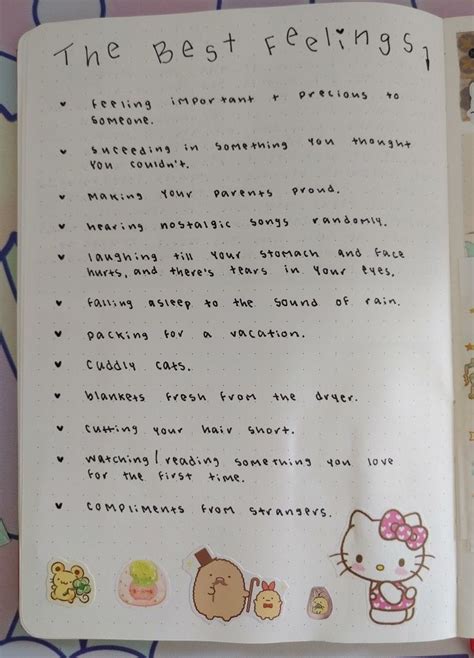 The Best Feelings,
feeling important + precious to
someone.
succeeding in something you thought
you couldn't.
making your parents proud.
hearing nostalgic songs randomly.
laughing till your stomach and face
hurts, and there's tears in your eyes.
falling asleep to the sound of rain.
packing for a vacation.
cuddly cats.
blankets fresh from the dryer.
cutting your hair short.
watching/reading something you love
for the first time.
compliments from strangers.